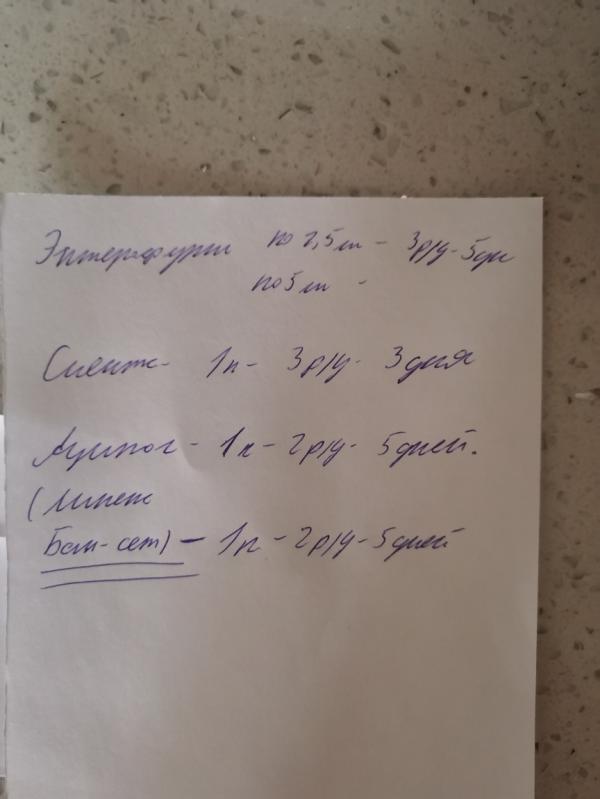 Энтерофурил по 2,5 мл - 3р/д - 5дн
по 5 мл -
Смекта - 1п - 3р/д - 3 дня
Аципол - 1к - 2р/д - 5 дней.
(Линекс
Бак-сет) - 1к - 2р/д - 5 дней